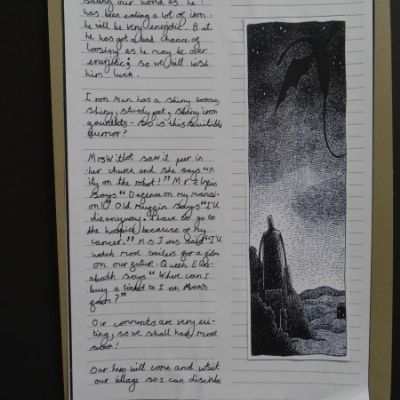 saving our world as he
has been eating a lot of iron
he will be very energetic. But
he has got a bad chance of
loosing as he may be over
energetic; so we will wish
him luck.
Iron man has a shiny torso,
shiny, sturdy feet, shiny iron
gauntlets - so is this suitible
armor?
saw it peer in
her church and she says "A
ity on the robot!" Mr
says " on my mansi-
on!" Old says "I'll
die anyway. I have to go to
the hospice because of my
cancer." Ms Jones said "I'll
watch more trailers for a film
on our future. Queen Eliz-
abeth says " Where can I
buy a ticket to Iron Mans
"
Our comments are very exi-
ting, so we shall have more
soon!
Our hero will come and visit
our village so I can describe